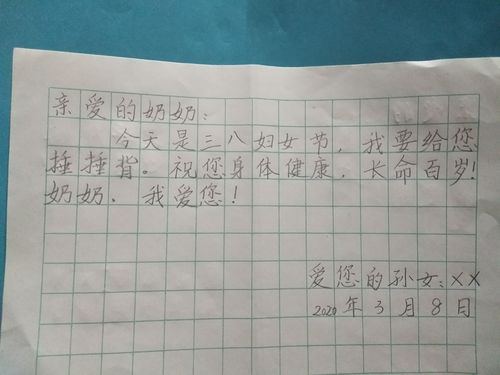 亲爱的奶奶：
今天是三八妇女节，我要给您
捶捶背。祝您身体健康，长命百岁！
奶奶，我爱您！
爱您的孙女：XX
2020年3月8日